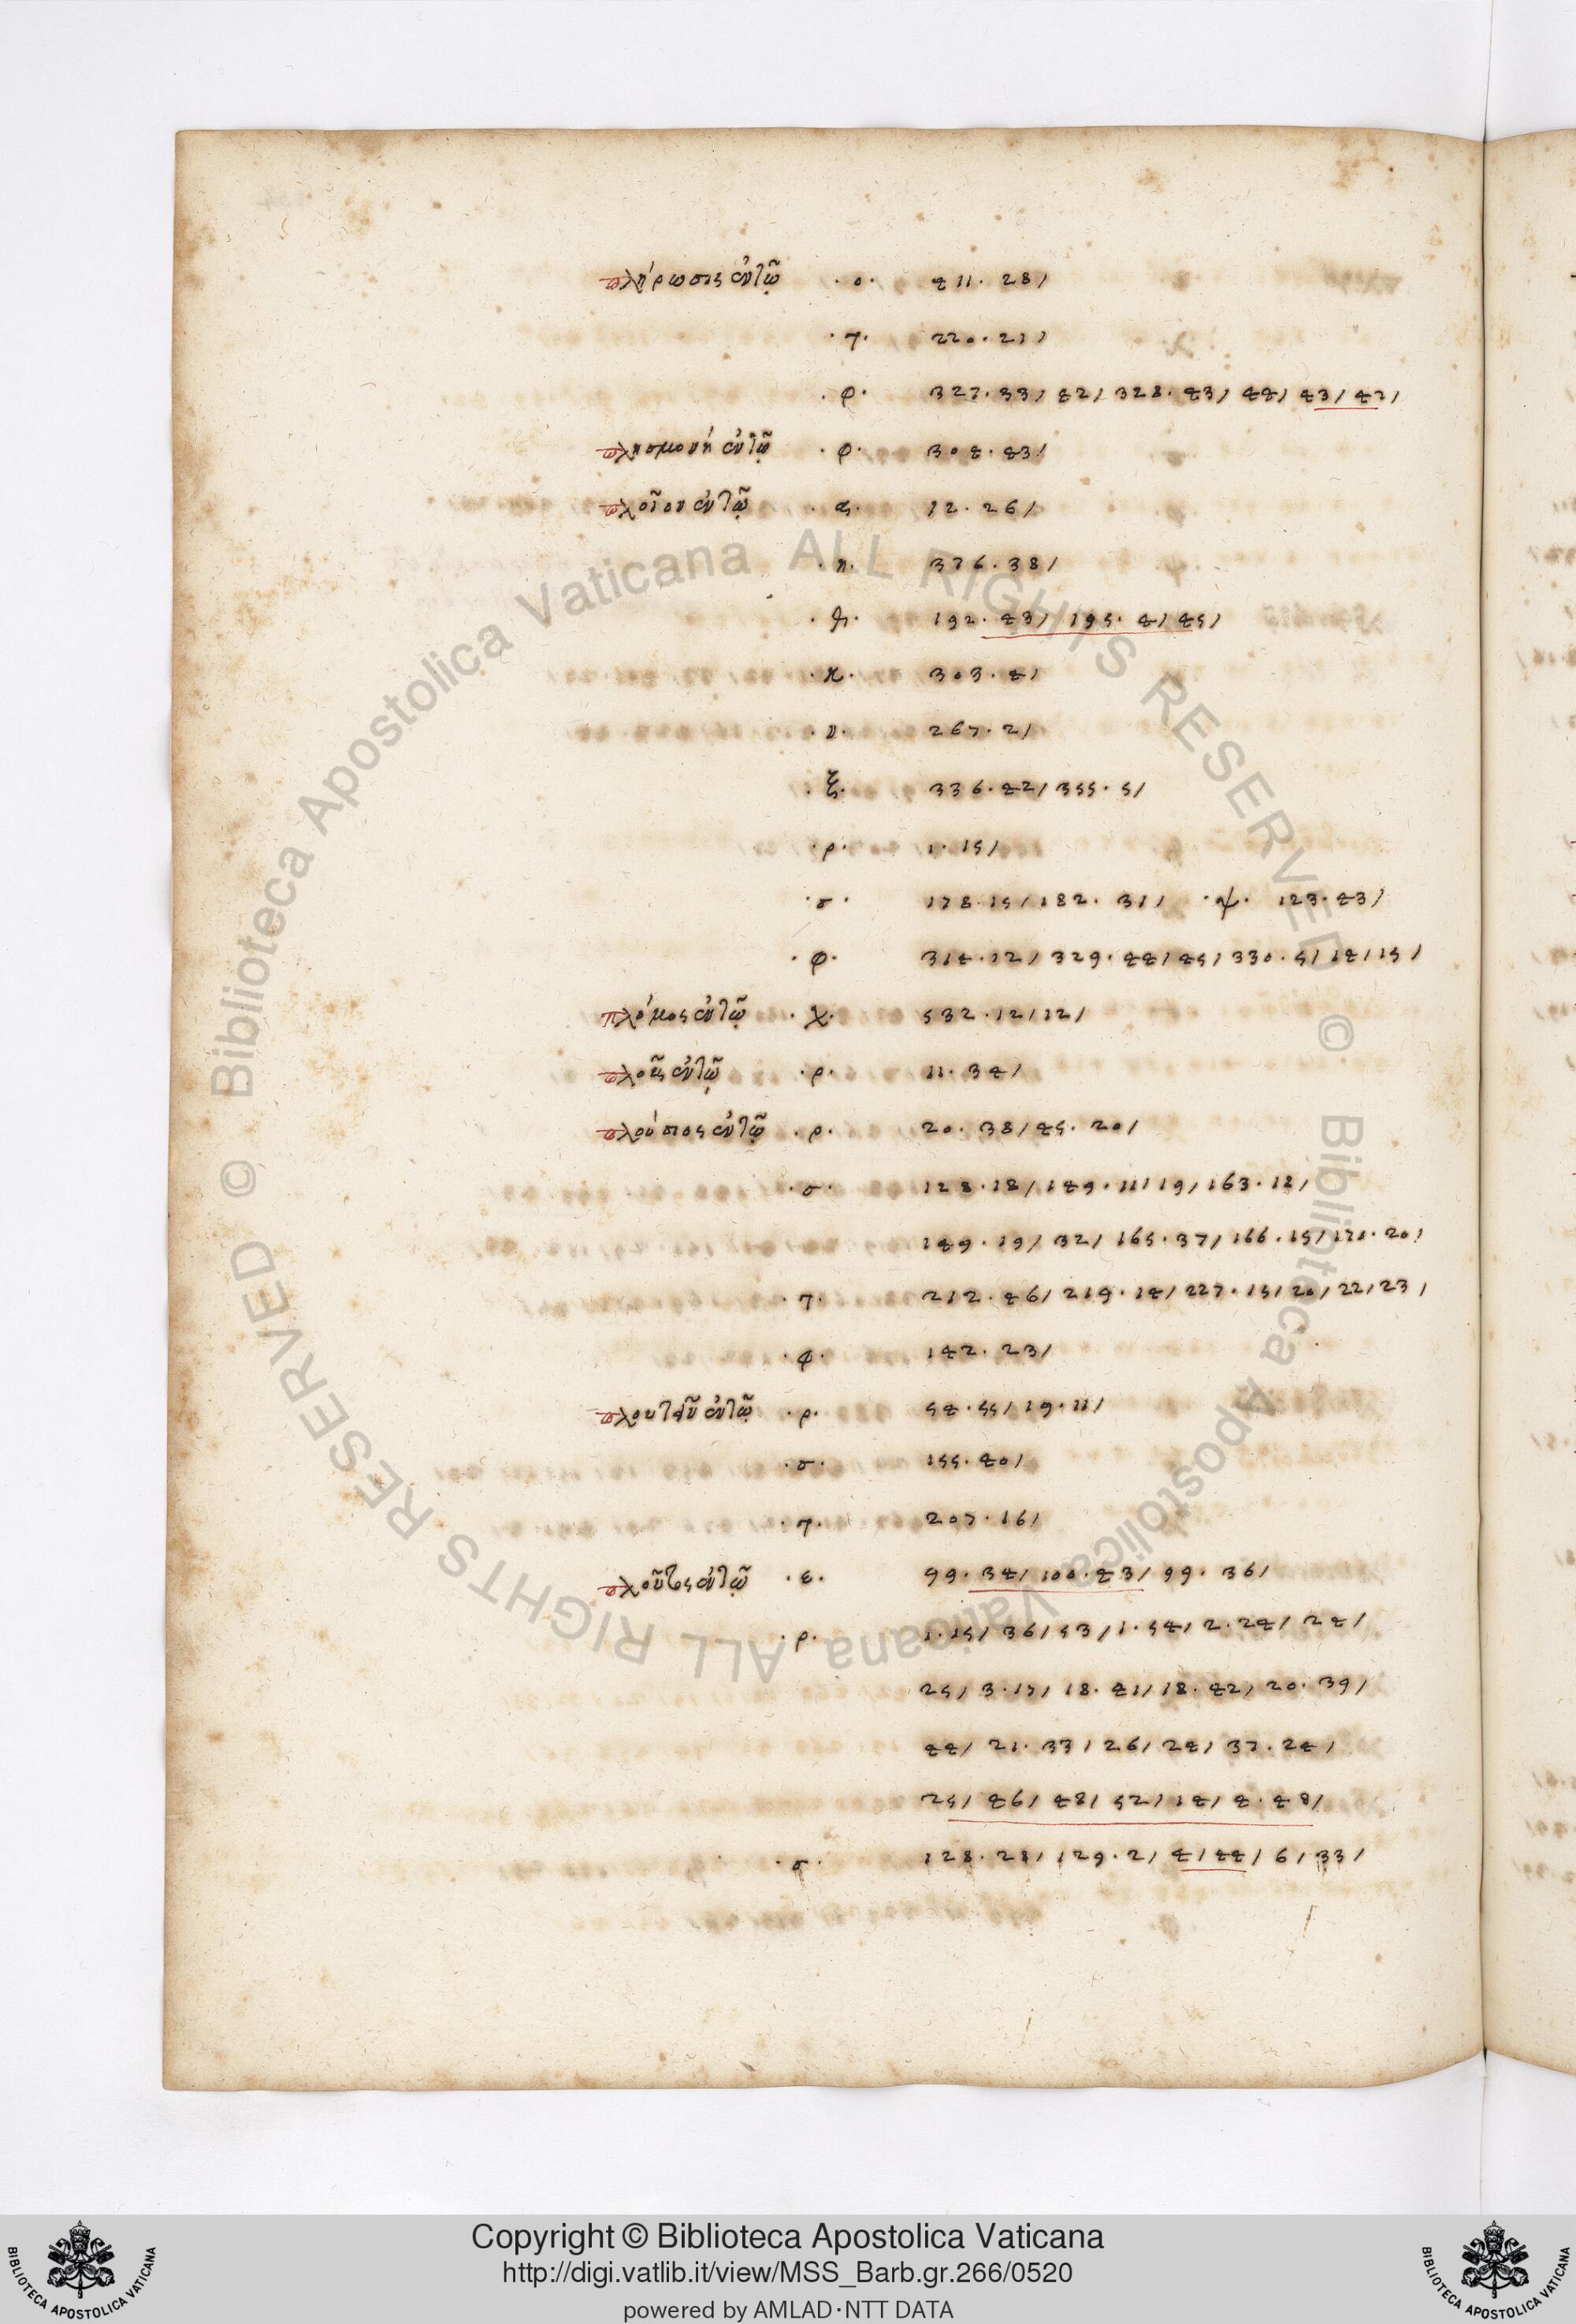 πλήρωσις ἐν τῷ · ο · 411 · 28 /
· τ · 220 · 21 /
· φ · 327 · 33 / 42 / 328 · 43 / 44 / 43 / 42 /
πλησμονή ἐν τῷ · φ · 304 · 43 /
πλοῖον ἐν τῷ · α · 12 · 26 /
· η · 376 · 38 /
192 · 43 / 195 · 4 / 45 /
· κ · 303 · 4 /
· ν · 267 · 2 /
· ξ · 336 · 42 / 355 · 5 /
· ρ · 1 · 15 /
· σ · 178 · 15 / 182 · 31 / · ψ · 123 · 43 /
· φ · 314 · 12 / 329 · 44 / 45 / 330 · 5 / 14 / 15 /
πλόμος ἐν τῷ · χ · 532 · 12 / 12 /
πλοῦς ἐν τῷ · ρ · 11 · 34 /
πλούσιος ἐν τῷ · ρ · 20 · 38 / 45 · 20 /
· σ · 128 · 18 / 149 · 11 / 19 / 163 · 12 /
149 · 19 / 32 / 165 · 37 / 166 · 15 / 171 · 20 /
· τ · 212 · 46 / 219 · 14 / 227 · 15 / 20 / 22 / 23 /
· φ · 142 · 23 /
πλουτεῖν ἐν τῷ · ρ · 54 · 55 / 19 · 11 /
· σ · 155 · 40 /
· τ · 207 · 16 /
πλοῦτος ἐν τῷ · ε · 99 · 34 / 100 · 43 / 99 · 36 /
· ρ · 1 · 15 / 36 / 53 / 1 · 54 / 2 · 24 / 24 /
25 / 3 · 17 / 18 · 41 / 18 · 42 / 20 · 39 /
44 / 21 · 37 / 26 / 24 / 37 · 24 /
25 / 46 / 48 / 52 / 14 / 4 · 48 /
· σ · 128 · 28 / 129 · 2 / 4 / 44 / 6 / 33 /
Copyright © Biblioteca Apostolica Vaticana
http://digi.vatlib.it/view/MSS_Barb.gr.266/0520
powered by AMLAD·NTT DATA
BIBLIOTECA APOSTOLICA VATICANA
BIBLIOTECA APOSTOLICA VATICANA
© Biblioteca Apostolica Vaticana ALL RIGHTS RESERVED
© Biblioteca Apostolica Vaticana ALL RIGHTS RESERVED